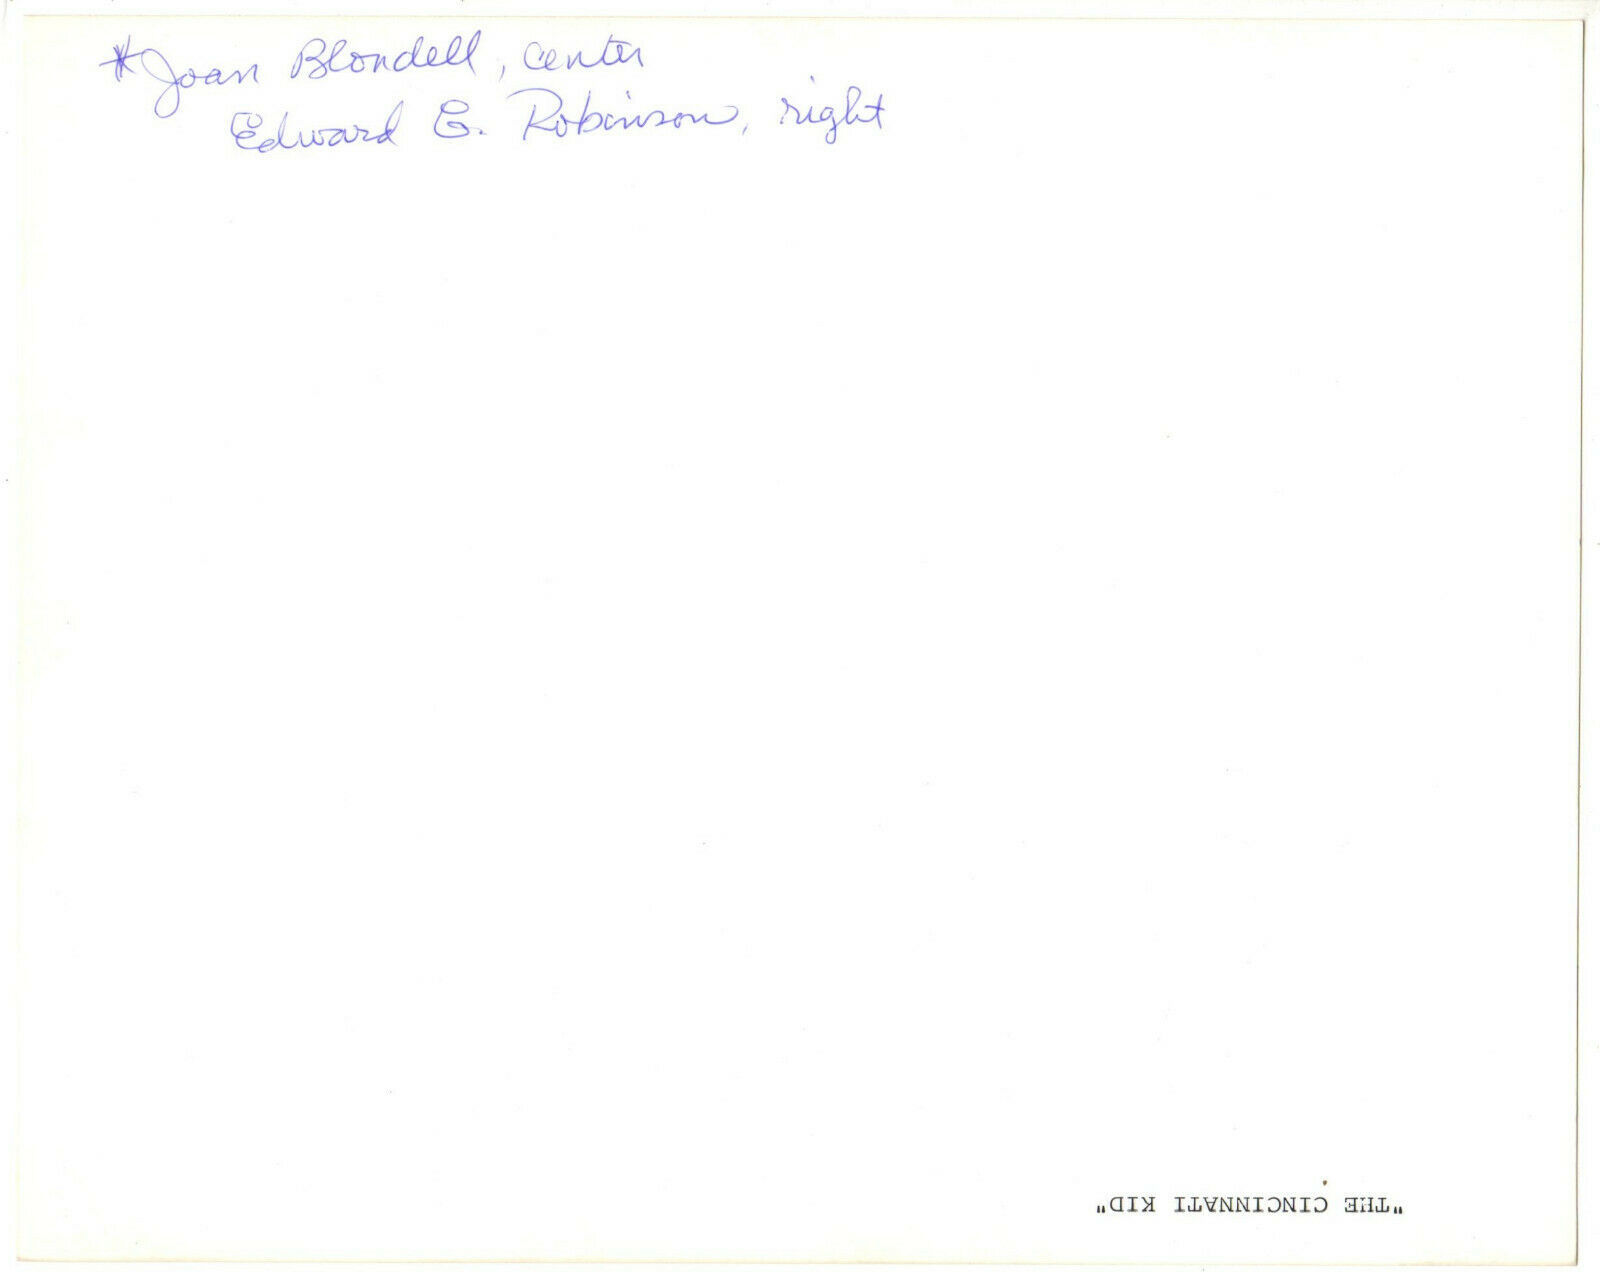 *Joan Blondell, center
Edward E. Robinson, right
"THE CINCINNATI KID"